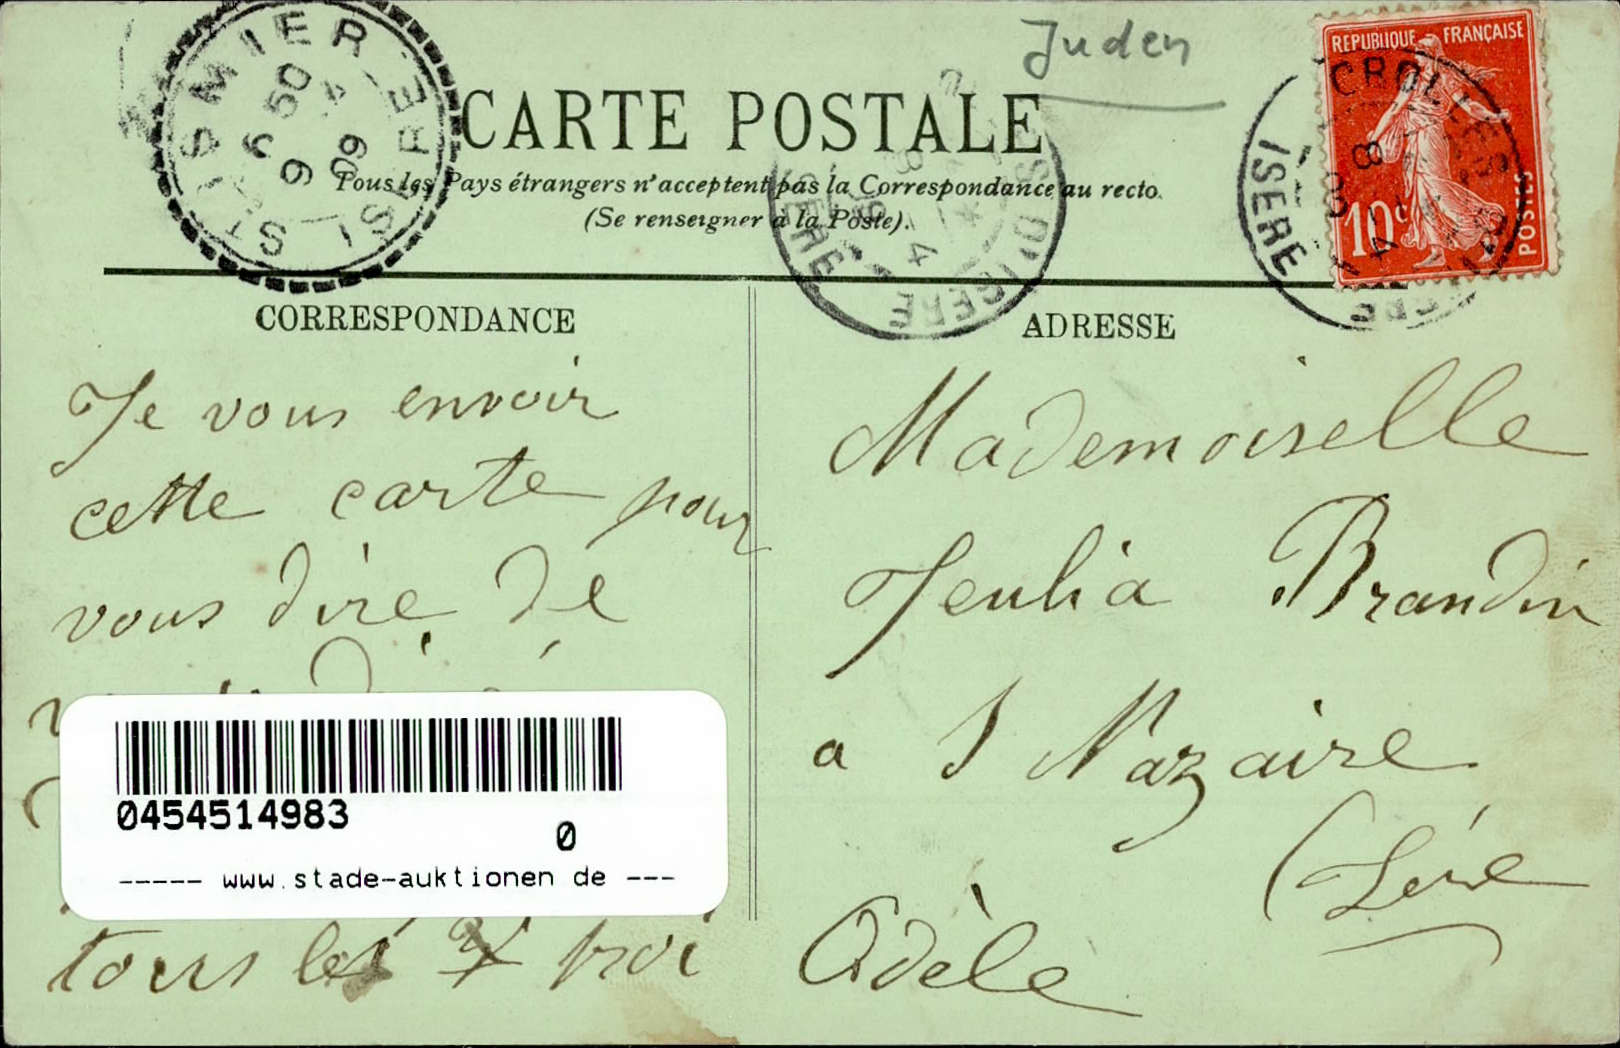 Juden
CARTE POSTALE
Tous les Pays étrangers n'acceptent pas la Correspondance au recto.
(Se renseigner à la Poste).
ST ISMIER
6 50
9
09
ISERE
ISERE
CROLLES
ISERE
REPUBLIQUE FRANÇAISE
10c
POSTES
CORRESPONDANCE
Je vous envoir
cette carte pour
vous dire de
tous les
troi
0454514983
0
----- www.stade-auktionen de ---
ADRESSE
Mademoiselle
Jeulia Brandin
a S Nazaire
Adèle